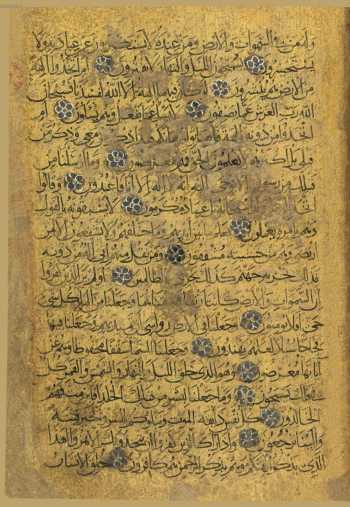 وله من في السموات والأرض ومن عنده لا يستكبرون عن عبادته ولا
يستحسرون يسبحون الليل والنهار لا يفترون أم اتخذوا آلهة
من الأرض هم ينشرون لو كان فيهما آلهة إلا الله لفسدتا فسبحان
الله رب العرش عما يصفون لا يسئل عما يفعل وهم يسئلون أم
اتخذوا من دونه آلهة قل هاتوا برهانكم هذا ذكر من معي وذكر من
قبلي بل أكثرهم لا يعلمون الحق فهم معرضون وما أرسلنا من
قبلك من رسول إلا نوحي إليه أنه لا إله إلا أنا فاعبدون وقالوا
اتخذ الرحمن ولدا سبحانه بل عباد مكرمون لا يسبقونه بالقول
وهم بأمره يعملون يعلم ما بين أيديهم وما خلفهم ولا يشفعون إلا لمن
ارتضى وهم من خشيته مشفقون ومن يقل منهم إني إله من دونه
فذلك نجزيه جهنم كذلك نجزي الظالمين أولم ير الذين كفروا
أن السموات والأرض كانتا رتقا ففتقناهما وجعلنا من الماء كل شيء
حي أفلا يؤمنون وجعلنا في الأرض رواسي أن تميد بهم وجعلنا فيها
فجاجا سبلا لعلهم يهتدون وجعلنا السماء سقفا محفوظا وهم عن
آياتها معرضون وهو الذي خلق الليل والنهار والشمس والقمر كل
في فلك يسبحون وما جعلنا لبشر من قبلك الخلد أفإن مت فهم
الخالدون كل نفس ذائقة الموت ونبلوكم بالشر والخير فتنة
وإلينا ترجعون وإذا رآك الذين كفروا إن يتخذونك إلا هزوا أهذا
الذي يذكر آلهتكم وهم بذكر الرحمن هم كافرون خلق الإنسان